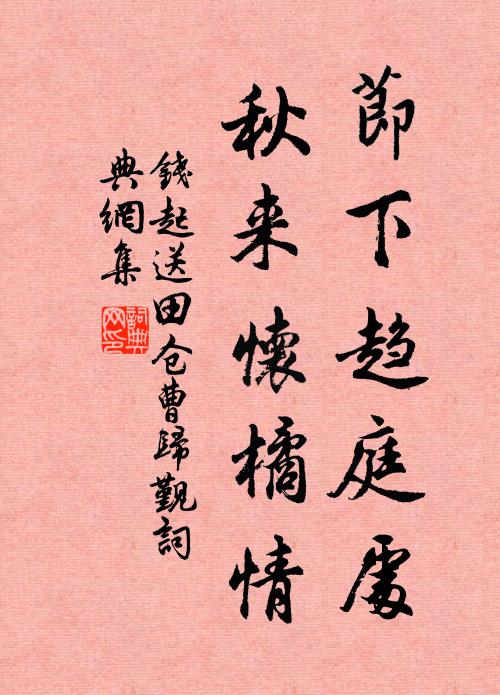 節下趋庭處
秋来懷橘情
錢起送田仓曹歸覲詞
典網集
詞典
网印